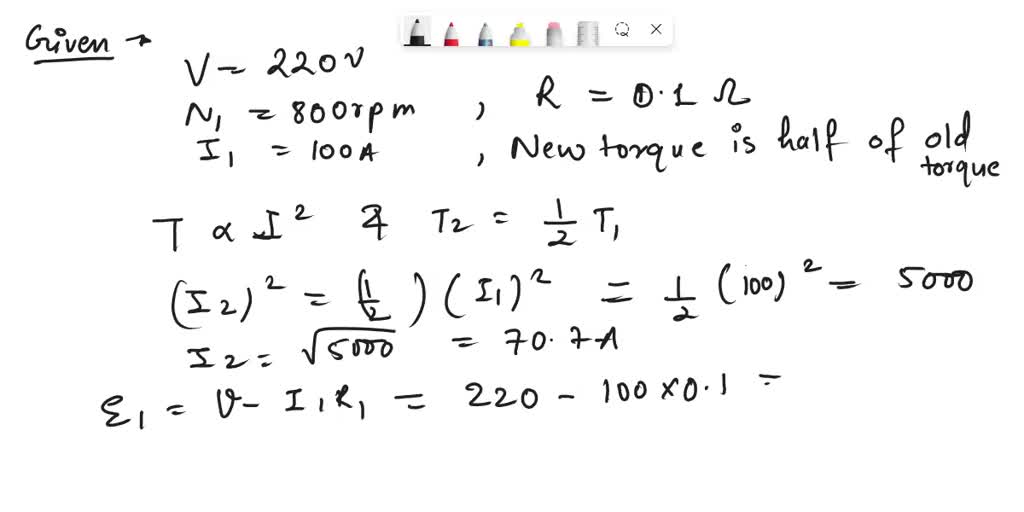 Given →
V = 220V
N₁ = 800rpm , R = 0.1 Ω
I₁ = 100A , New torque is half of old torque
T ∝ I² & T₂ = 1/2 T₁
(I₂)² = (1/2) (I₁)² = 1/2 (100)² = 5000
I₂ = √5000 = 70.7A
Ɛ₁ = V - I₁R₁ = 220 - 100 × 0.1 =